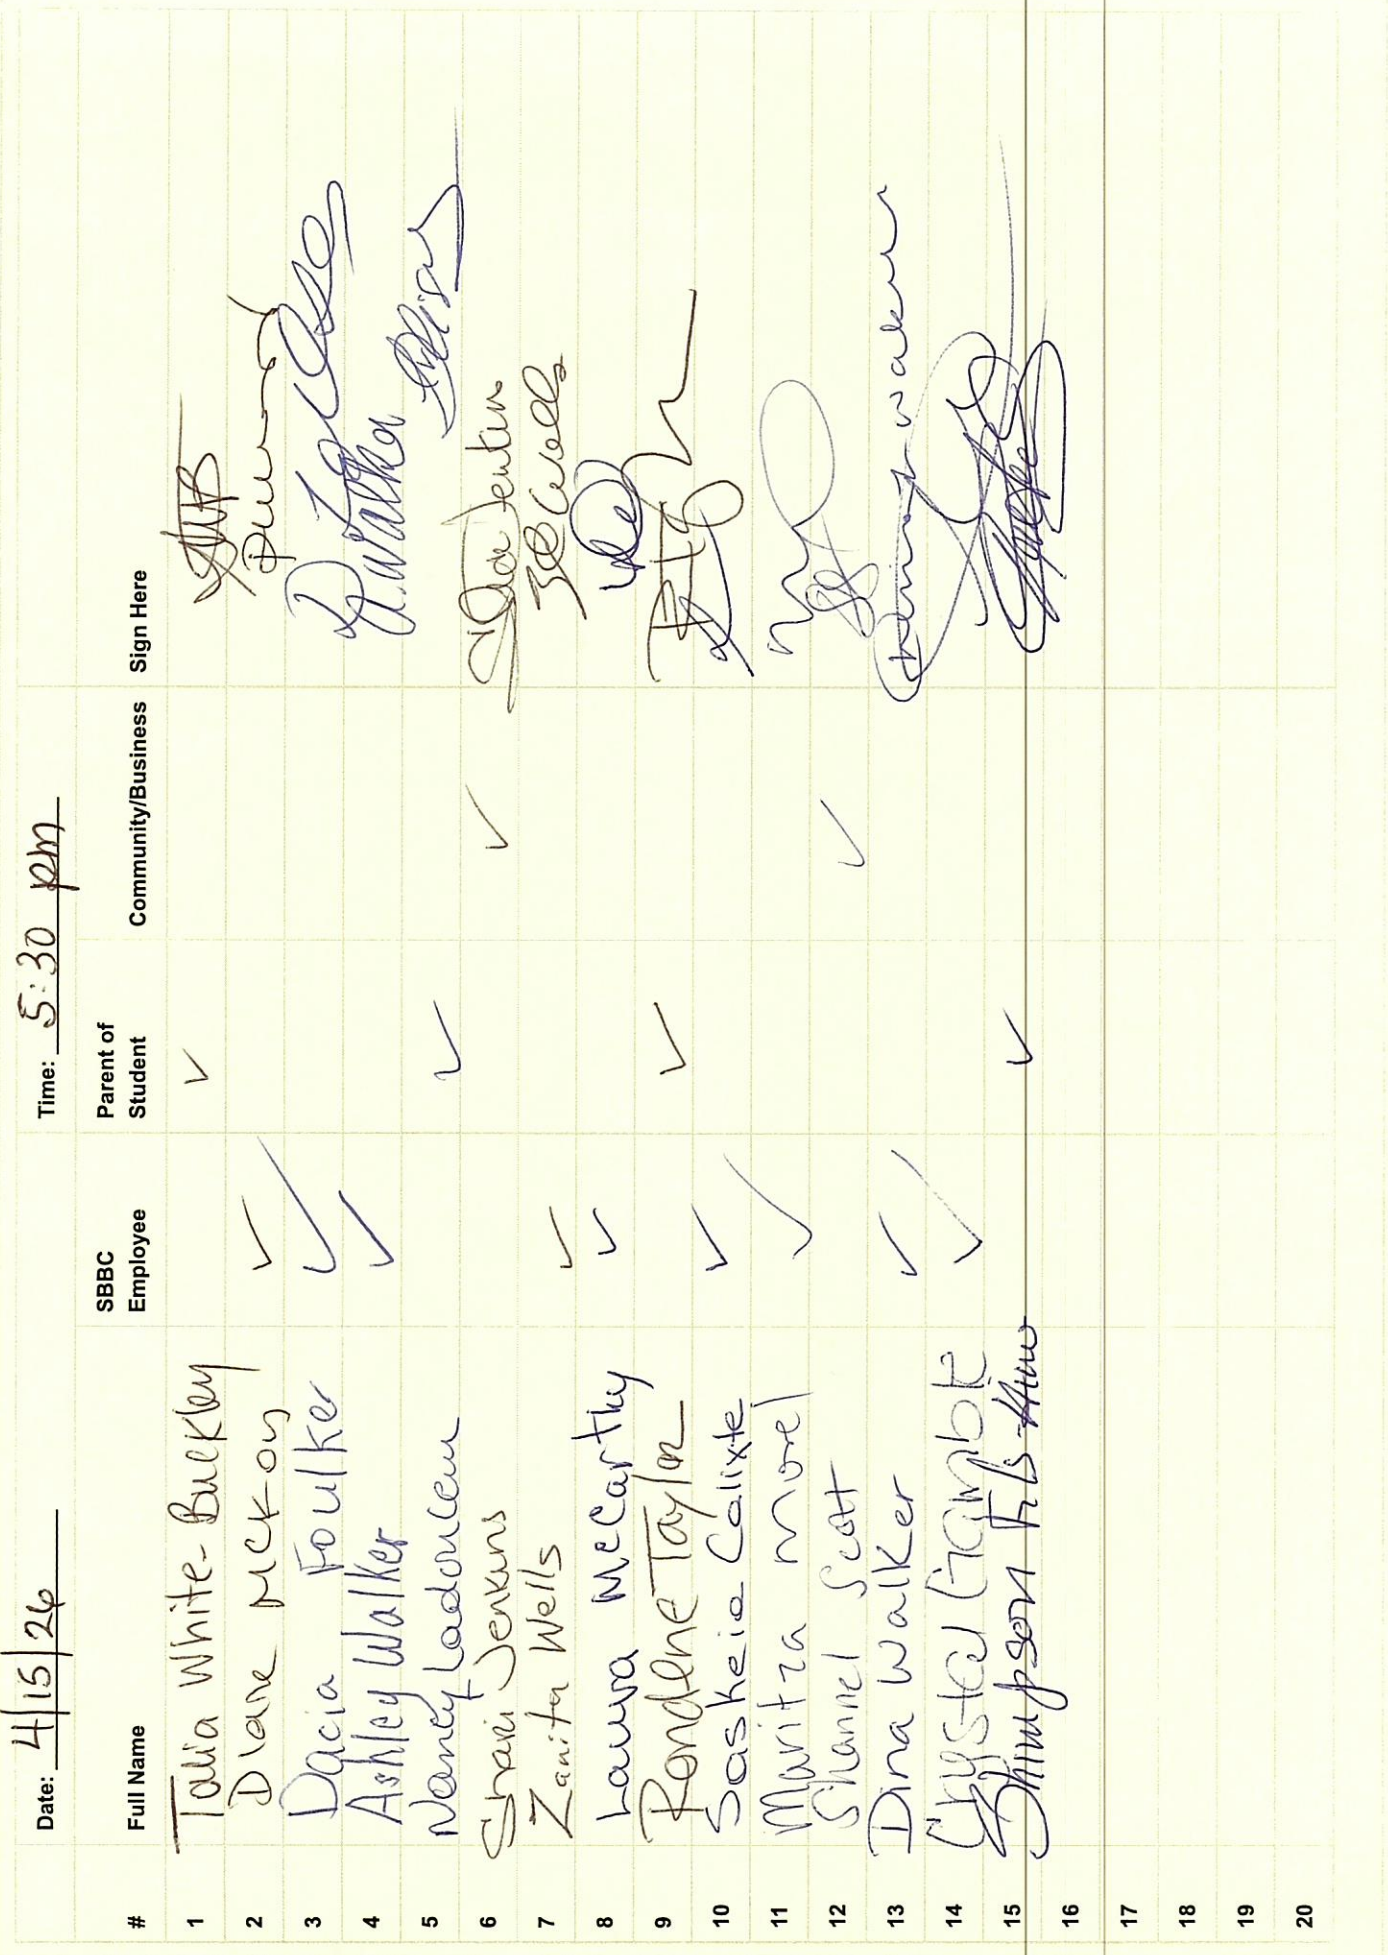 Date: 4/15/26 Time: 5:30 pm
# Full Name SBBC Employee Parent of Student Community/Business Sign Here
1 Talia White-Buckley ✓
2 Diane McKoy ✓
3 Dacia Foulker ✓
4 Ashley Walker ✓ A. Walker
5 Nancy ✓
6 Shari Jenkins ✓ Jenkins
7 Zanita Wells ✓ Wells
8 Laura McCarthy ✓
9 Rondene Taylor ✓
10 Saskeia Calixte ✓
11 Maritza Morel ✓
12 Shannel Scott ✓
13 Dina Walker ✓ Walker
14 Crystal Gamble ✓
15 ✓
16
17
18
19
20